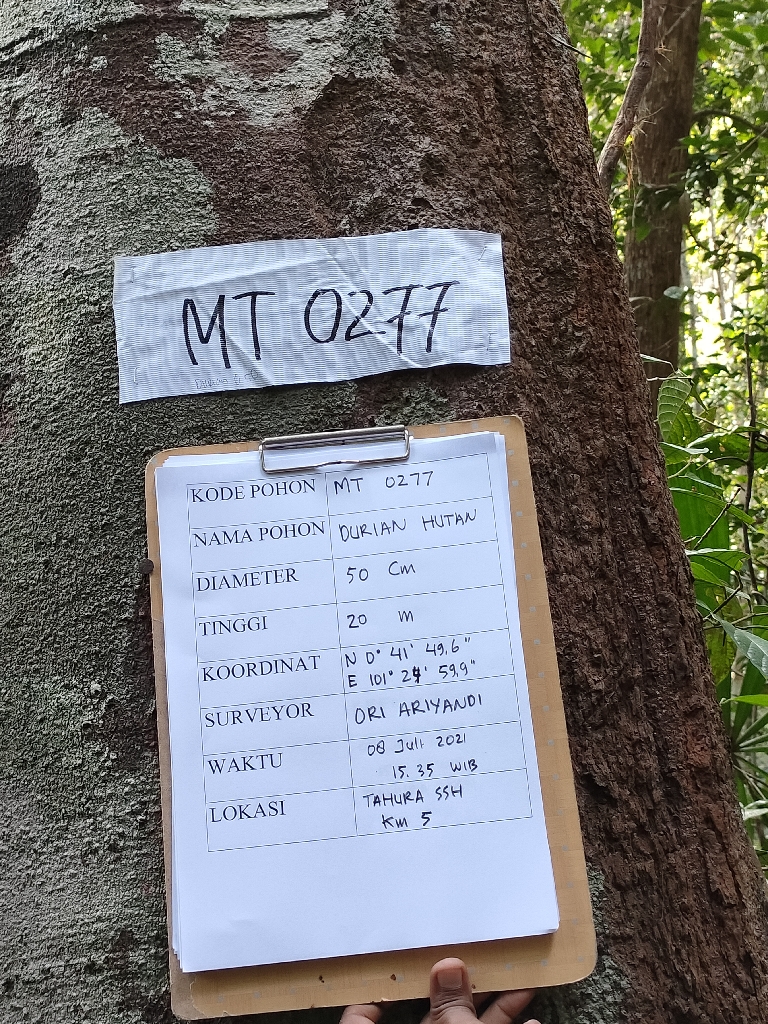 MT 0277
KODE POHON MT 0277
NAMA POHON DURIAN HUTAN
DIAMETER 50 Cm
TINGGI 20 m
KOORDINAT N 0° 41' 49.6"
E 101° 24' 59.9"
SURVEYOR ORI ARIYANDI
WAKTU 08 Juli 2021
15.35 WIB
LOKASI TAHURA SSH
Km 5